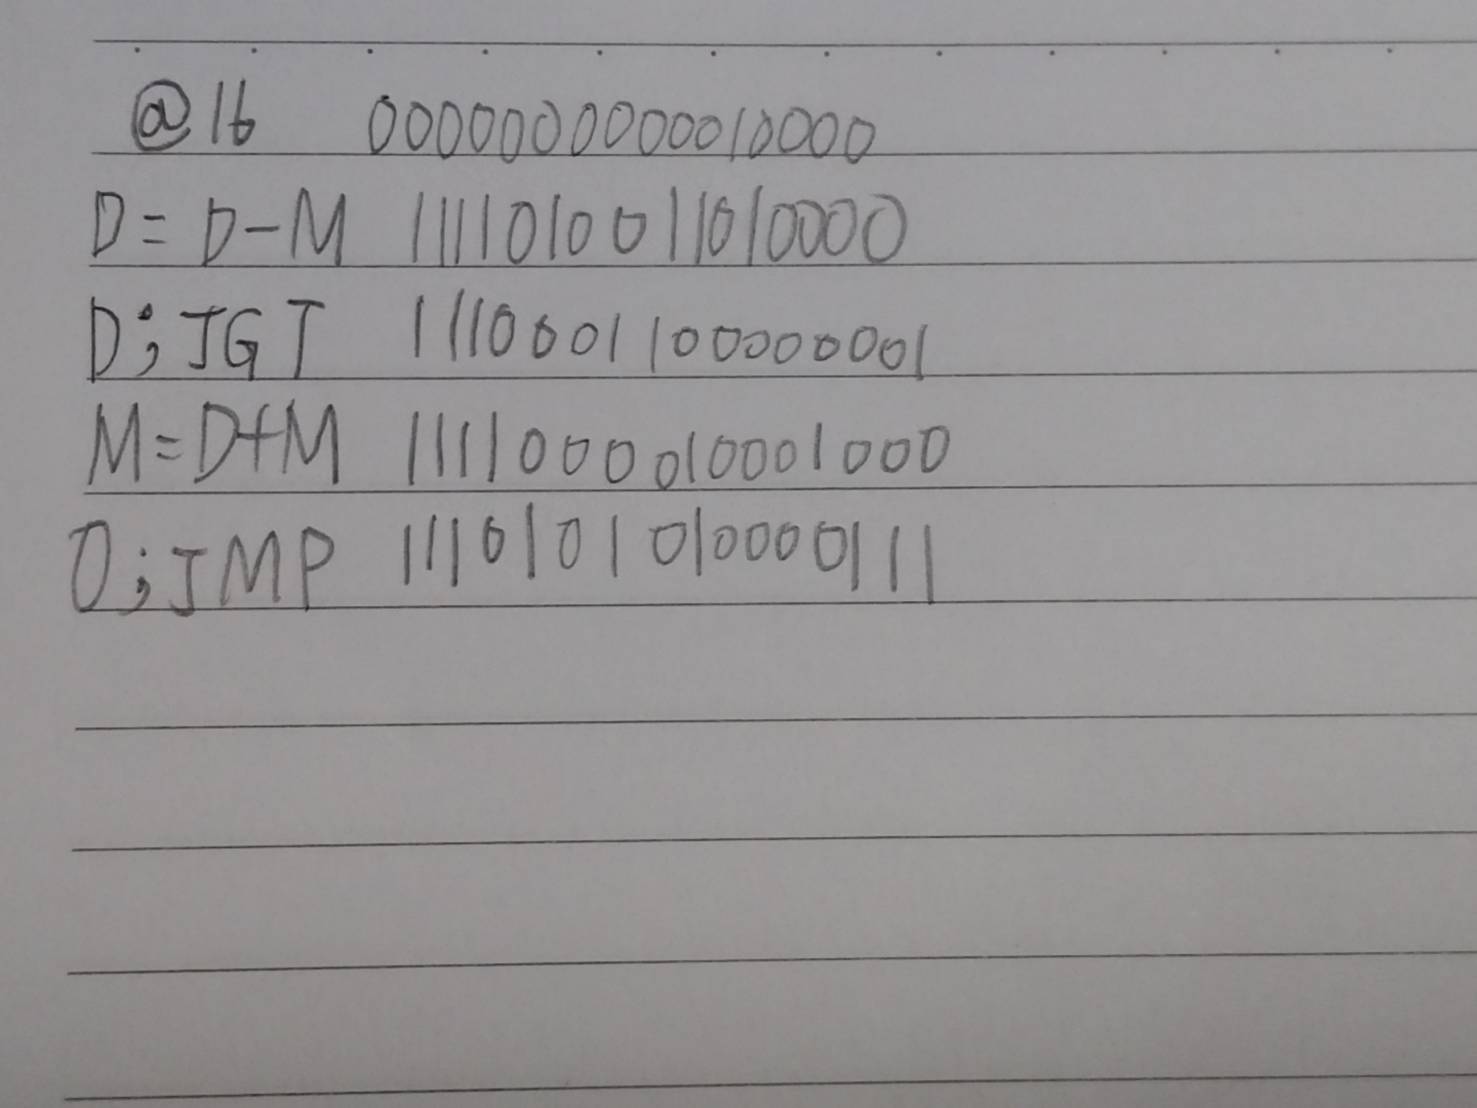 @16 0000000000010000
D=D-M 1111010011010000
D;JGT 1110001100000001
M=D+M 1111000010001000
0;JMP 1110101010000111